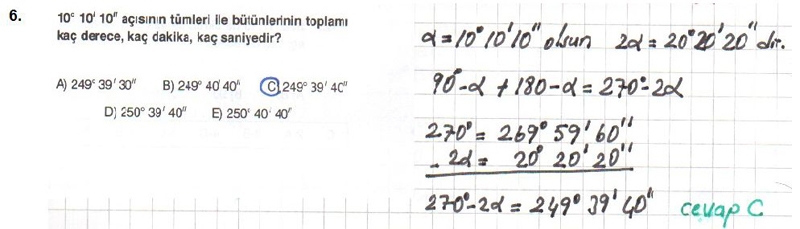 6. 10° 10' 10" açısının tümleri ile bütünlerinin toplamı
kaç derece, kaç dakika, kaç saniyedir?
A) 249° 39' 30" B) 249° 40' 40" C) 249° 39' 40"
D) 250° 39' 40" E) 250° 40' 40"
α = 10° 10' 10" olsun 2α = 20° 20' 20" dir.
90° - α + 180 - α = 270° - 2α
270° = 269° 59' 60"
- 2α = 20° 20' 20"
270° - 2α = 249° 39' 40" cevap C